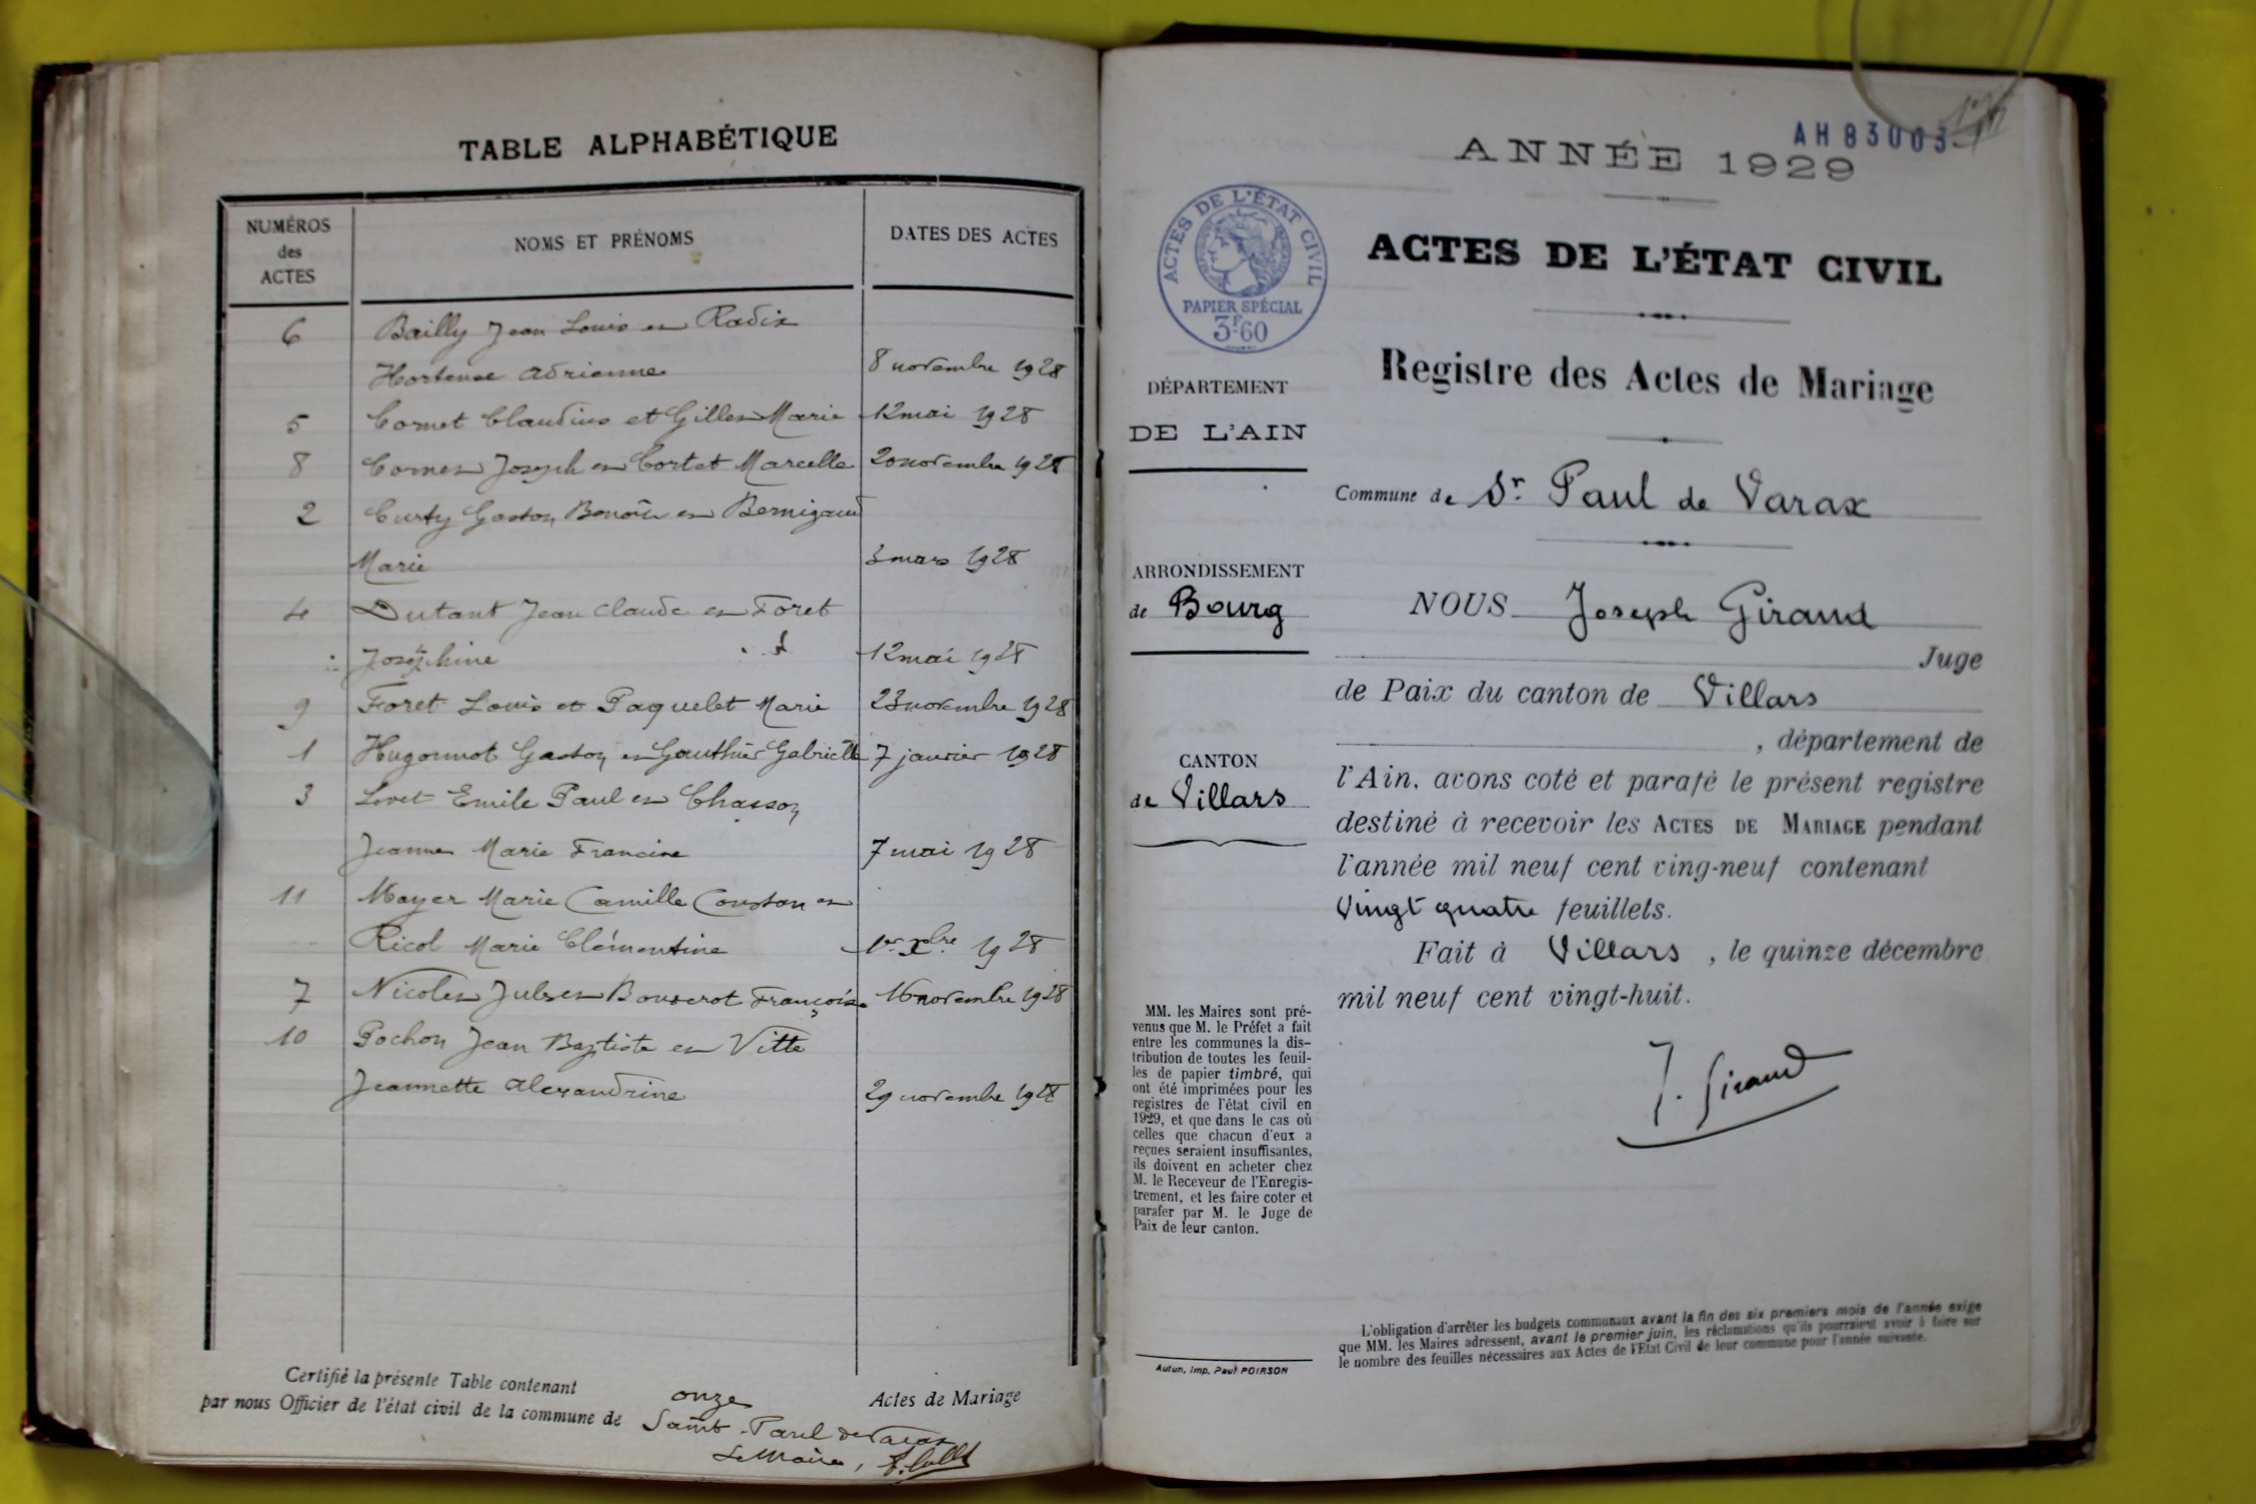 TABLE ALPHABÉTIQUE
NUMÉROS des ACTES
NOMS ET PRÉNOMS
DATES DES ACTES
6 Bailly Jean Louis et Radix
Hortense Adrienne 8 novembre 1928
5 Cornet Claudius et Gilles Marie 12 mai 1928
8 Joseph et Cortet Marcelle 20 novembre 1928
2 Curty Gaston Benoît et Bernigaud
Marie 3 mars 1928
4 Dutant Jean Claude et Foret
Joséphine 12 mai 1928
9 Foret Louis et Paquelet Marie 23 novembre 1928
1 Hugonnot Gaston et Gauthier Gabrielle 7 janvier 1928
3 Emile Paul et Chasson
Jeanne Marie Francine 7 mai 1928
11 Mayer Marie Camille Constan et
Ricol Marie Clémentine 1er Xbre 1928
7 Jules et Françoise 16 novembre 1928
10 Pochon Jean Baptiste et Vitte
Jeannette Alexandrine 29 novembre 1928
Certifié la présente Table contenant onze Actes de Mariage
par nous Officier de l'état civil de la commune de Saint-Paul de Varax
Le Maire,
AH 83003
ANNÉE 1929
ACTES DE L'ÉTAT CIVIL
PAPIER SPÉCIAL
3F60
ACTES DE L'ÉTAT CIVIL
Registre des Actes de Mariage
DÉPARTEMENT
DE L'AIN
Commune de St Paul de Varax
ARRONDISSEMENT
de Bourg
CANTON
de Villars
NOUS Joseph Giraud
Juge
de Paix du canton de Villars
, département de
l'Ain, avons coté et parafé le présent registre
destiné à recevoir les ACTES DE MARIAGE pendant
l'année mil neuf cent ving-neuf contenant
Vingt quatre feuillets.
Fait à Villars, le quinze décembre
mil neuf cent vingt-huit.
J. Giraud
MM. les Maires sont pré-
venus que M. le Préfet a fait
entre les communes la dis-
tribution de toutes les feuil-
les de papier timbré, qui
ont été imprimées pour les
registres de l'état civil en
1929, et que dans le cas où
celles que chacun d'eux a
reçues seraient insuffisantes,
ils doivent en acheter chez
M. le Receveur de l'Enregis-
trement, et les faire coter et
parafer par M. le Juge de
Paix de leur canton.
Autun, Imp. Paul POIRSON
L'obligation d'arrêter les budgets communaux avant la fin des six premiers mois de l'année exige
que MM. les Maires adressent, avant le premier juin, les réclamations qu'ils pourraient avoir à faire sur
le nombre des feuilles nécessaires aux Actes de l'Etat Civil de leur commune pour l'année suivante.